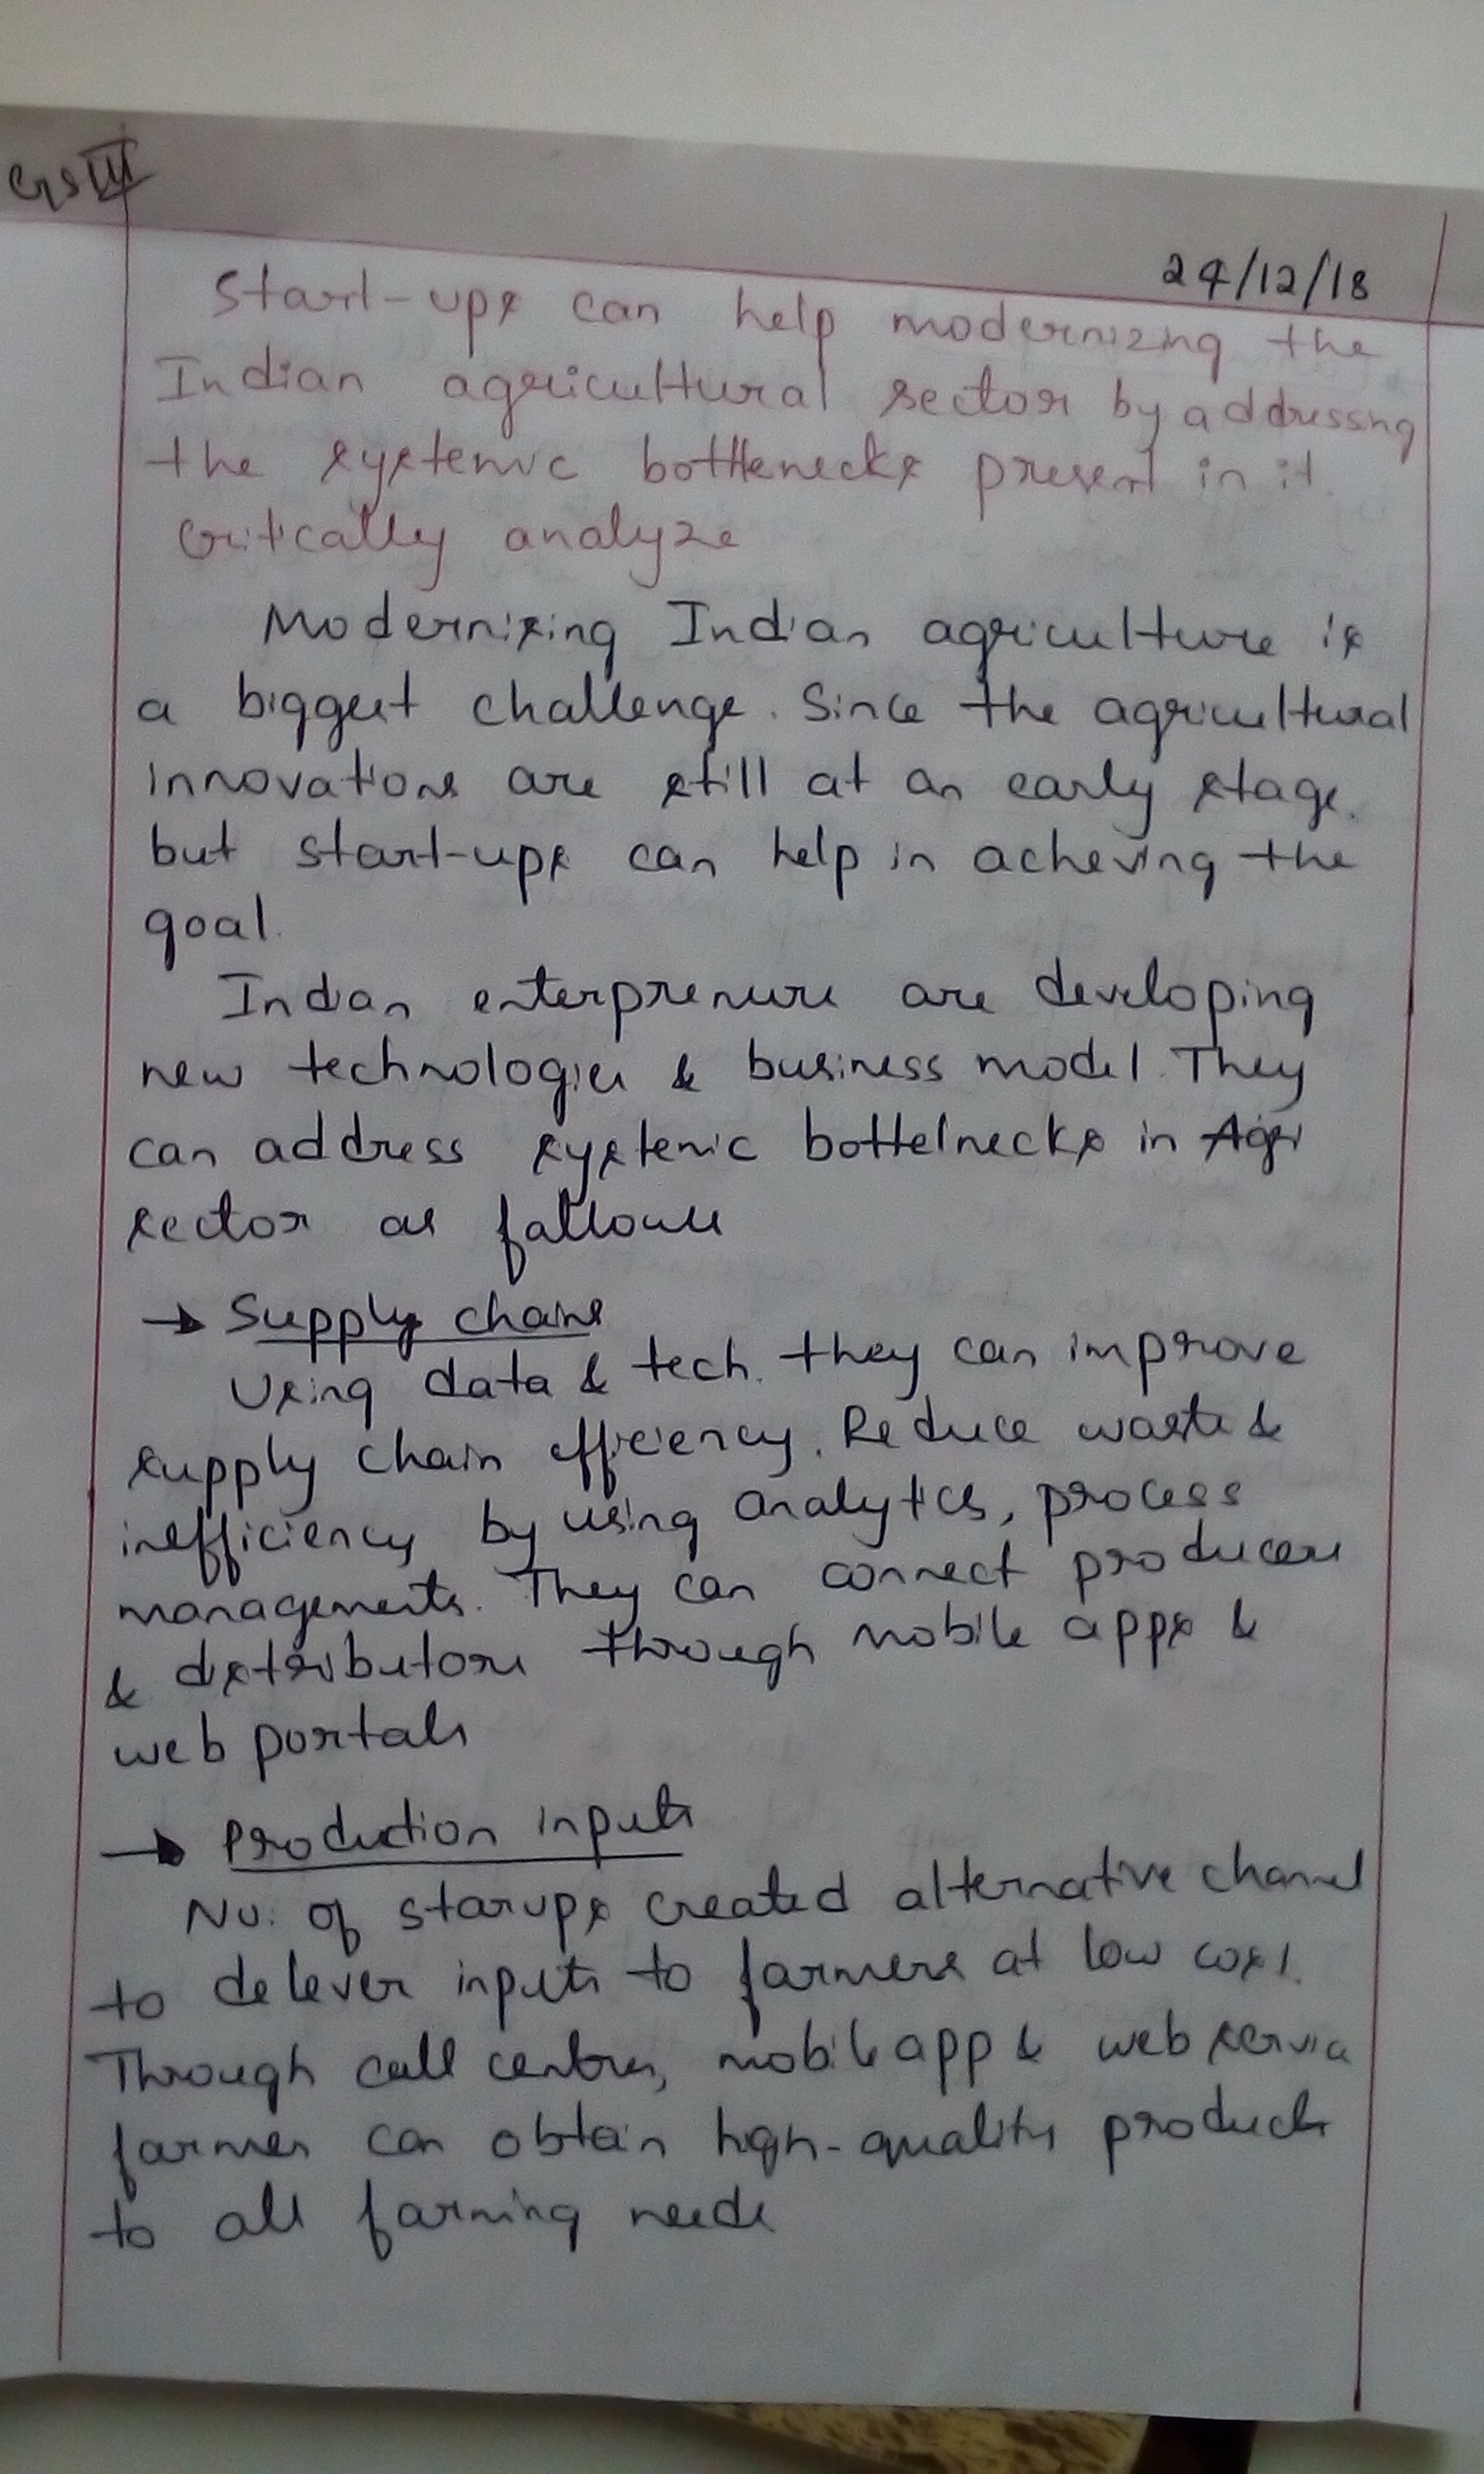 GS III
24/12/18
Start-ups can help modernizing the
Indian agricultural sector by addressing
the systemic bottlenecks present in it.
Critically analyze
Modernising Indian agriculture is
a biggest challenge. Since the agricultural
innovations are still at an early stage.
but start-ups can help in acheving the
goal.
Indian enterprenurs are developing
new technologies & business model. They
can address systemic bottelnecks in Agri
sector as follows
→ Supply chains
Using data & tech. they can improve
supply chain efficiency. Reduce waste &
inefficiency by using analytics, process
managements. They can connect producers
& distributors through mobile apps &
web portals
→ Production inputs
No. of starups created alternative channel
to delever inputs to farmers at low cost.
Through call centres, mobile app & web service
farmer can obtain high-quality products
to all farming needs